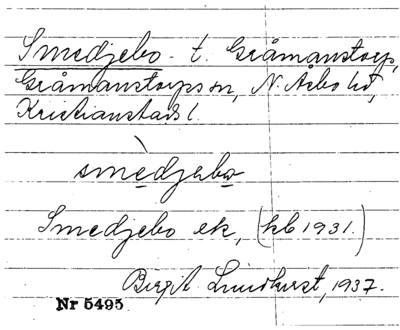 Smedjebo - t. Gråmanstorp,
Gråmanstorps sn, N. Åsbo hd,
Kristianstads l.
smèdjebo
Smedjebo ek, (kb 1931.)
Birgit Lindkvist, 1937.
Nr 5495